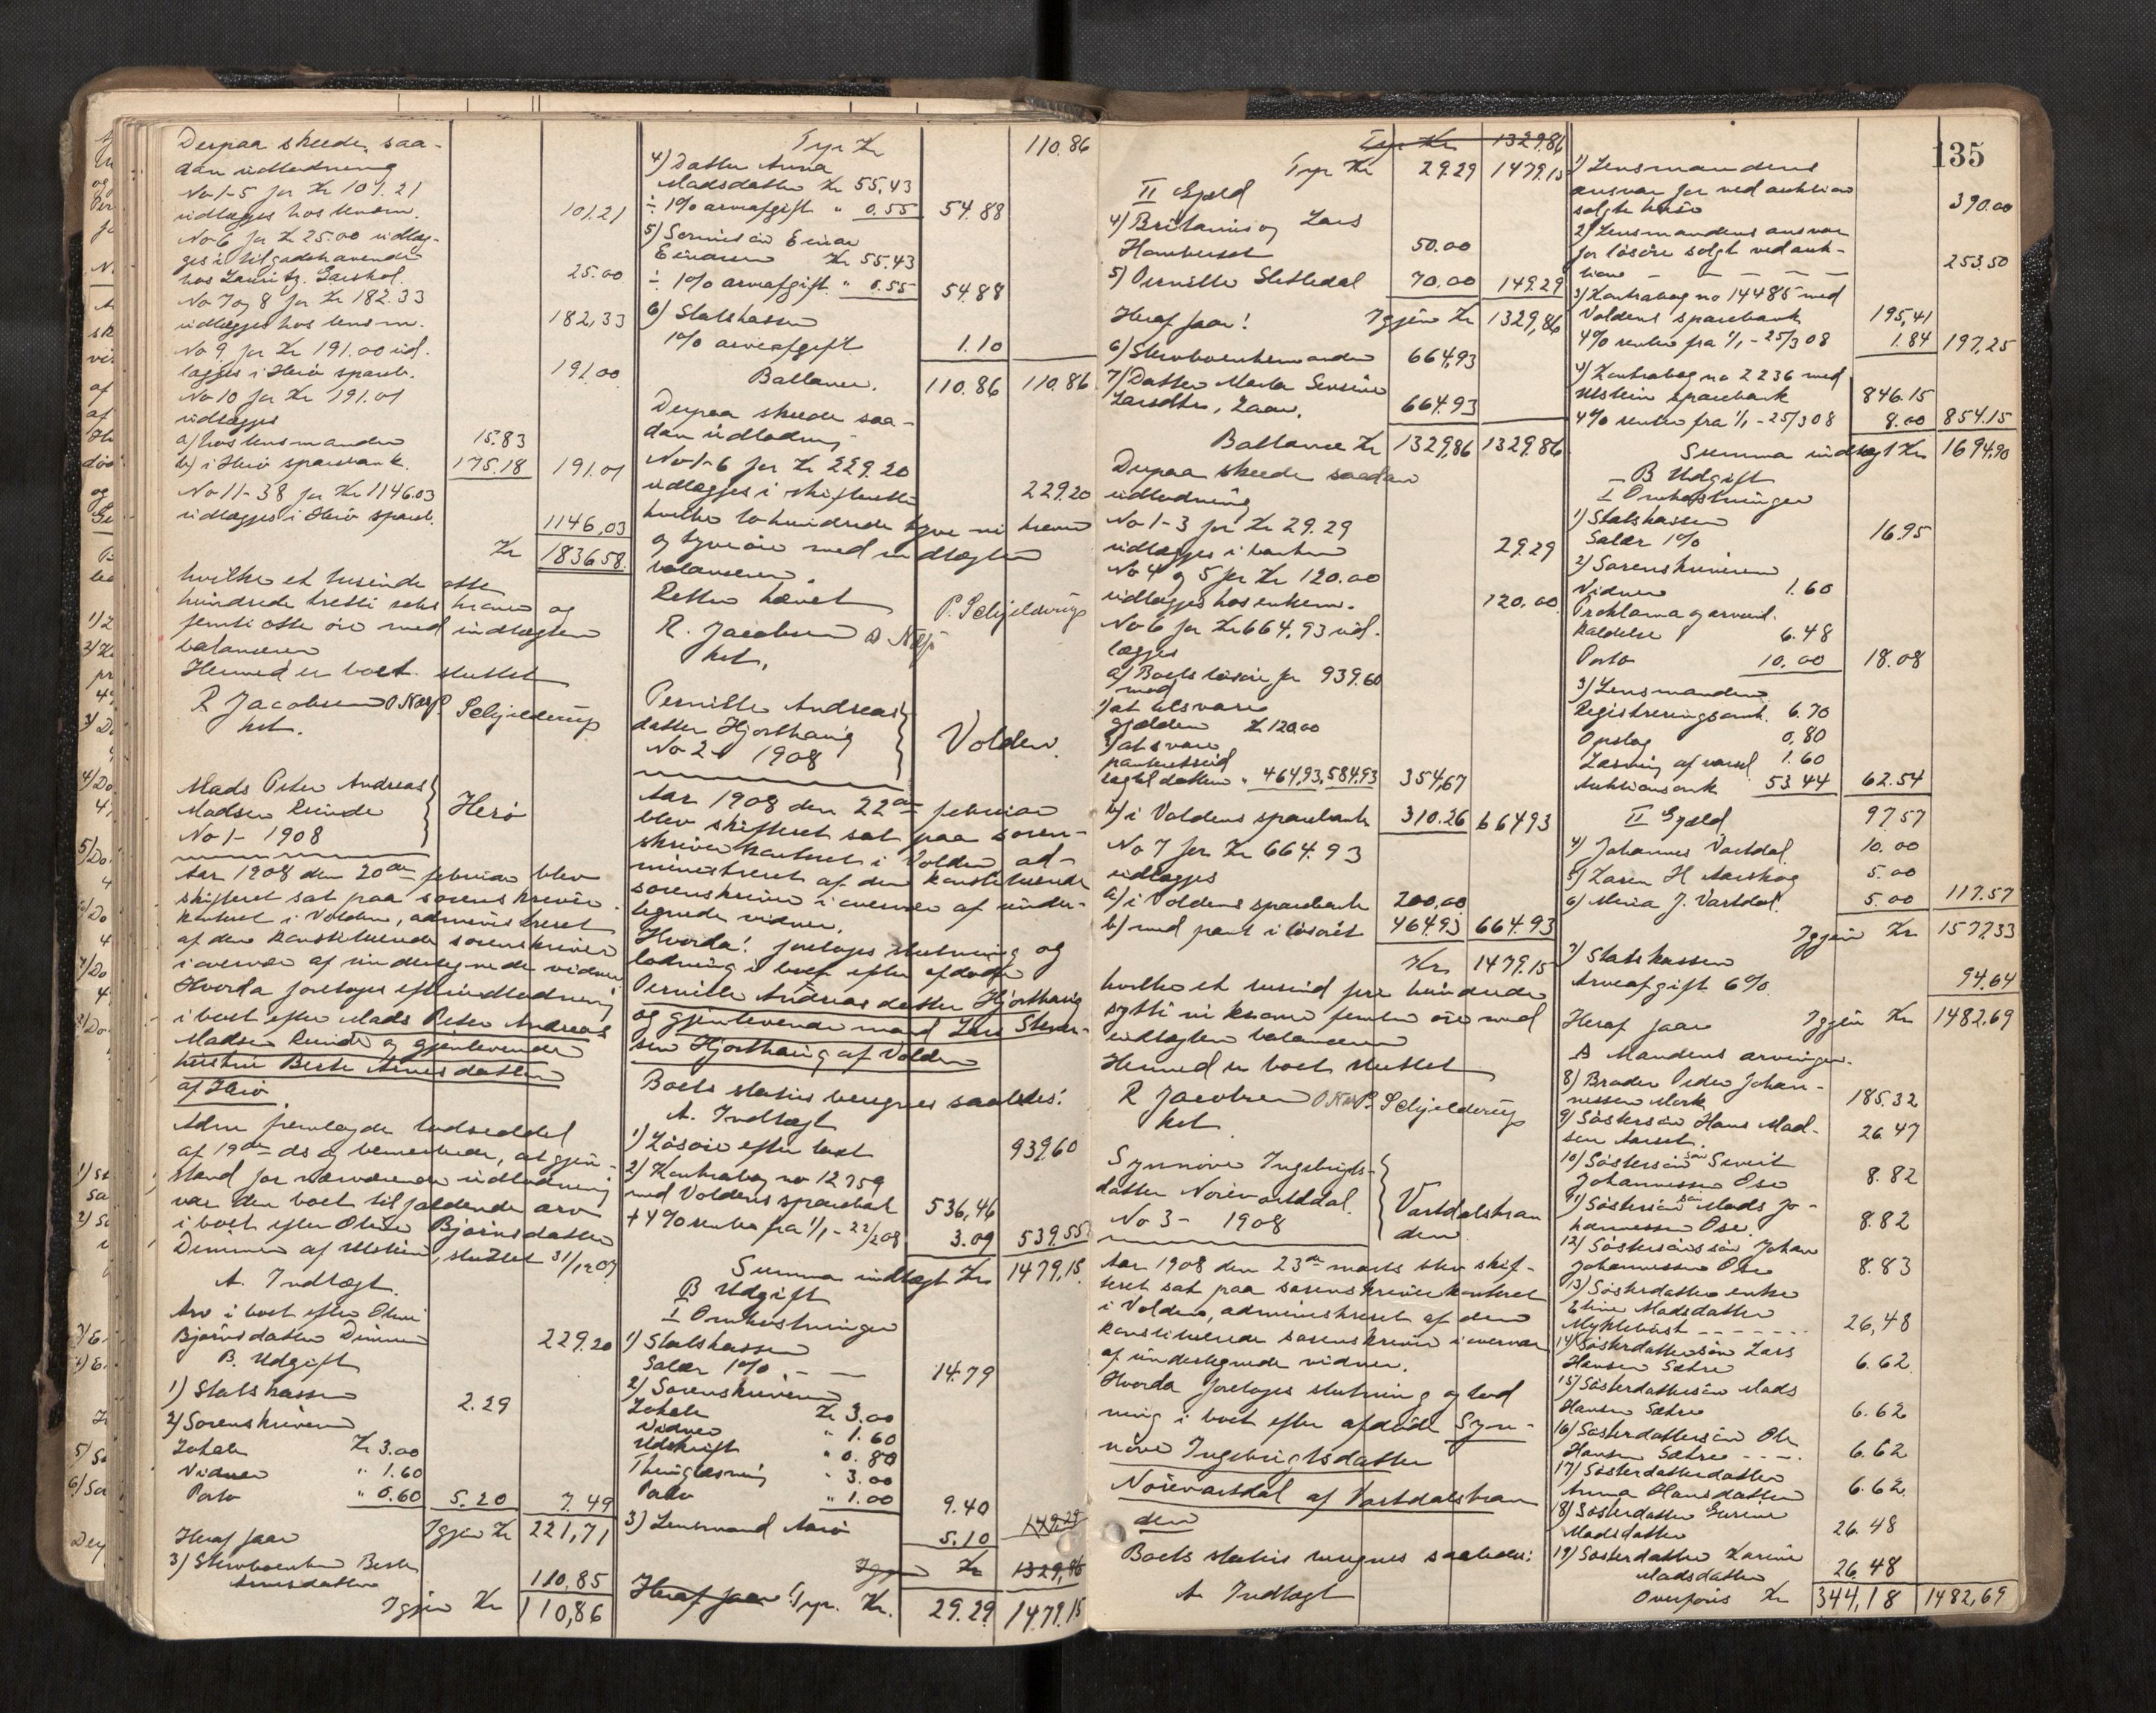 Derpaa skeede saa-
dan udlodning
No 1-5 for Kr 101.21
udlægges hos lensm. 101.21
No 6 for Kr 25.00 udlæg-
ges i tilgodehavende
hos Lauritz Garshol. 25.00
No 7 og 8 for Kr 182.33
udlægges hos lensm. 182,33
No 9 for Kr 191.00 ud-
lægges i Herø spareb. 191.00
No 10 for Kr 191.01
udlægges
a) hos lensmanden 15.83
b) i Herø sparebank. 175.18 191.01
No 11-38 for Kr 1146.03
udlægges i Herø spareb. 1146,03
Kr 1836.58.
hvilke et tusinde otte
hundrede tretti seks kroner og
femti otte øre med indtægten
balancerer
Hermed er boet sluttet
R Jacobsen O Næs P. Schjelderup
kst.
Mads Peter Andreas
Madsen Runde
No 1- 1908
Herø
Aar 1908 den 20de februar blev
skifteret sat paa sorenskriver-
kontoret i Volden, administreret
af den konstituerede sorenskriver
i overvær af undertegnede vidner
Hvorda foretoges efterudlodning
i boet efter Mads Peter Andreas
Madsen Runde og gjenlevende
hustru Berte Arnesdatter
af Herø.
Adm fremlagde lodseddel
af 19de ds og bemerkede, at gjen-
stand for nærværende udlodning
var den boet tilfaldende arv
i boet efter Oline Bjørnsdatter
Dimmen af Ulstein, sluttet 31/12 07
A. Indtægt.
Arv i boet efter Oline
Bjørnsdatter Dimmen 229.20
B. Udgift
1) Statskassen 2.29
2) Sorenskriveren
Lokale Kr 3.00
Vidner " 1.60
Porto " 0.60 5.20 7.49
Heraf faar Igjen Kr 221,71
3) Stervboenken Berte
Arnesdatter 110.85
Igjen Kr 110,86
Trpr Kr 110.86
4) Datter Anna
Madsdatter Kr 55,43
÷ 1% arveafgift " 0.55 54.88
5) Einar
Einarsen Kr 55.43
÷ 1% arveafgift " 0.55 54.88
6) Statskassen
1% arveafgift 1.10
Ballance. 110.86 110.86
Derpaa skeede saa-
dan udlodning
No 1-6 for Kr 229.20
udlægges i skifteretten 229.20
hvilke tohundrede tyve ni kroner
og tyve øre med indtægten
balancerer.
Retten hævet
R. Jacobsen O Næs P. Schjelderup
kst.
Pernille Andreas
datter Hjorthaug
No 2- 1908
Volden
Aar 1908 den 22de februar
blev skifteret sat paa soren-
skriverkontoret i Volden ad-
ministreret af den konstituerede
sorenskriver i overvær af under-
tegnede vidner.
Hvorda! foretoges slutning og
lodning i boet efter afdøde
Pernille Andreasdatter Hjorthaug
og gjenlevende mand Lars Steven-
sen Hjorthaug af Volden
Boets status beregnes saaledes:
A. Indtægt
1) Løsøre efter taxt 939.60
2) Kontrabog no 12759
med Voldens sparebank 536,46
+ 4% renter fra 1/1 - 22/2 08 3.09 539.55
Summa indtægt Kr 1479,15
B Udgift
I Omkostninger
1) Statskassen
Salær 1% - - 14.79
2) Sorenskriveren
Lokale Kr 3.00
Vidner " 1.60
Udskrift " 0.80
Thinglæsning " 3.00
Porto " 1.00 9.40
3) Lensmand Aarø 5.10 149.29
Igjen Kr 1329,86
Heraf faar! Trpr. Kr. 29.29 1479.15
Trpr Kr 1329.86
Trpr Kr 29.29 1479.15
II Gjeld
4) og Lars
50.00
5) Pernille Sletledal 70.00 149.29
Heraf faar! Igjen Kr 1329,86
6) Sterboenkemanden 664,93
7) Datter Marta Severine
Larsdtr, Laar. 664.93
Ballance Kr 1329,86 1329.86
Derpaa skeede saadan
udlodning
No 1-3 for Kr 29.29
udlægges i banken 29.29
No 4 og 5 for Kr 120.00
udlægges hos enkem. 120.00
No 6 for Kr 664,93 ud-
lægges
a) Boets løsøre for 939.60
mod
1) at tilsvare
gjælden Kr 120.00
2) at svare
panteretten tillagt datter " 464,93, 584.93 354,67
b) i Voldens sparebank 310.26 664.93
No 7 for Kr 664.93
udlægges
a) i Voldens sparebank 200,00
b) med pant i løsøret 464.93 664.93
Kr. 1479.15
hvilke et tusind fire hundrede
sytti ni kroner femten øre med
indtægten balancerer
Hermed er boet sluttet
R Jacobsen O Næs P. Schjelderup
kst
Synnøve Ingebrigts-
datter Norevartdal.
No 3- 1908
Vartdalstran
den
Aar 1908 den 23de marts blev skif-
teret sat paa sorenskriverkontoret
i Volden, administreret af den
konstituerede sorenskriver i overvær
af undertegnede vidner.
Hvorda foretoges slutning og lod
ning i boet efter afdøde Syn-
nøve Ingebrigtsdatter
Norevartdal af Vartdalstran
den
Boets status beregnes saaledes:
A Indtægt
135
1) Lensmandens
ansvar for ved auktion
solgte 390.00
2) Lensmandens ansvar
for løsøre solgt ved auk-
tion - - - - 253.50
3) Kontrabog no 14485 med
Voldens sparebank 195,41
4% renter fra 1/1 - 25/3 08 1.84 197,25
4) Kontrabog no 2236 med
Ulstein sparebank 846.15
4% renter fra 1/1 - 25/3 08 8.00 854.15
Summa indtægt Kr 1694.90
B Udgift
I Omkostninger
1) Statskassen
Salær 1% 16.95
2) Sorenskriveren
Vidner 1.60
Proklama og arveind-
kaldelse 6.48
Porto 10.00 18.08
3) Lensmanden
Registreringsomk. 6.70
Opslag 0,80
Læsning af varsel 1.60
Auktionsomk 53.44 62.54
II Gjæld 97.57
4) Johannes Vartdal. 10.00
5) Karen H Aarskog 5.00
6) J. Vartdal. 5.00 117.57
Igjen Kr 1577,33
7) Statskassen
Arveafgift 6% 94.64
Heraf faar Igjen Kr 1482,69
A Mandens arvinger.
8) Broder Peder Johan-
nessen Mork 185.32
9) Søstersøn Hans Mad-
sen Aarset. 26.47
10) Søstersøns søn Sevrit
Johannessen Ose 8.82
11) Søstersøns søn Mads Jo-
hannessen Ose. 8.82
12) Søstersøns søn Johan
Johannessen Ose 8.83
13) Søsterdatter enke
Eline Madsdatter
Myklebust - - - - 26,48
14) Søsterdattersøn Lars
Hansen Sætre 6.62
15) Søsterdattersøn Mads
Hansen Sætre 6.62
16) Søsterdattersøn Ole
Hansen Sætre - - - 6.62
17) Søsterdatterdatter
Anna Hansdatter 6.62
18) Søsterdatter Gurine
Madsdatter 26.48
19) Søsterdatter Karine
Madsdatter 26.48
Overføres Kr 344,18 1482,69